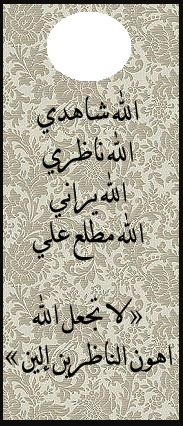 الله شاهدي
الله ناظري
الله يراني
الله مطلع علي
«لا تجعل الله
اهون الناظرين إلين»